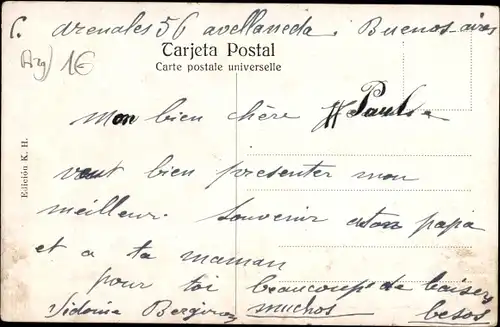 C. arenales 56 avellaneda. Buenos-aires
Arg) 1€
Tarjeta Postal
Carte postale universelle
Mon bien chère Paul
veut bien presenter mon
meilleur. Souvenir aton papa
et a ta maman
pour toi beaucoup de baisers
muchos besos
Edición K. H.